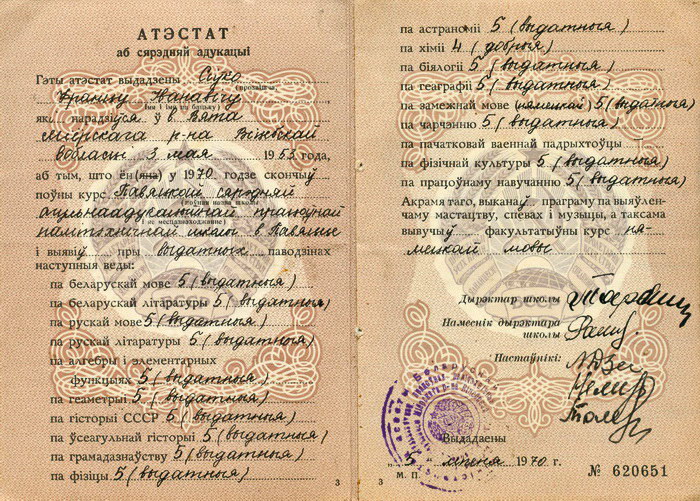 АТЭСТАТ
аб сярэдняй адукацыі
Гэты атэстат выдадзены Сухо
(прозвішча,
імя і імя па бацьку)
які нарадзіўся ў в Вята
Мёрскага р-на Віцебскай
вобласці 3 мая 1953 года,
аб тым, што ён (яна) у 1970 годзе скончыў
поўны курс Павяцкай сярэдняй
(поўная назва школы
агульнаадукацыйнай працоўнай
і яе месцазнаходжанне)
политэхнічнай школы в Павяцце
і выявіў пры выдатных паводзінах
наступныя веды:
па беларускай мове 5 (выдатныя)
па беларускай літаратуры 5 (выдатныя)
па рускай мове 5 (выдатныя)
па рускай літаратуры 5 (выдатныя)
па алгебры і элементарных
функцыях 5 (выдатныя)
па геаметрыі 5 (выдатныя)
па гісторыі СССР 5 (выдатныя)
па ўсеагульнай гісторыі 5 (выдатныя)
па грамадазнаўству 5 (выдатныя)
па фізіцы 5 (выдатныя)
3
па астраноміі 5 (выдатныя)
па хіміі 4 (добрыя)
па біялогіі 5 (выдатныя)
па геаграфіі 5 (выдатныя)
па замежнай мове (нямецкай) 5 (выдатныя)
па чарчэнню 5 (выдатныя)
па пачатковай ваеннай падрыхтоўцы
па фізічнай культуры 5 (выдатныя)
па працоўнаму навучанню 5 (выдатныя)
Акрамя таго, выканаў праграму па выяўлен-
чаму мастацтву, спевах і музыцы, а таксама
вывучыў факультатыўны курс ня-
мецкай мовы
Дырэктар школы
Намеснік дырэктара
школы
Настаўнікі:
Выдадзены
1970 г.
М. П.
№ 620651
3